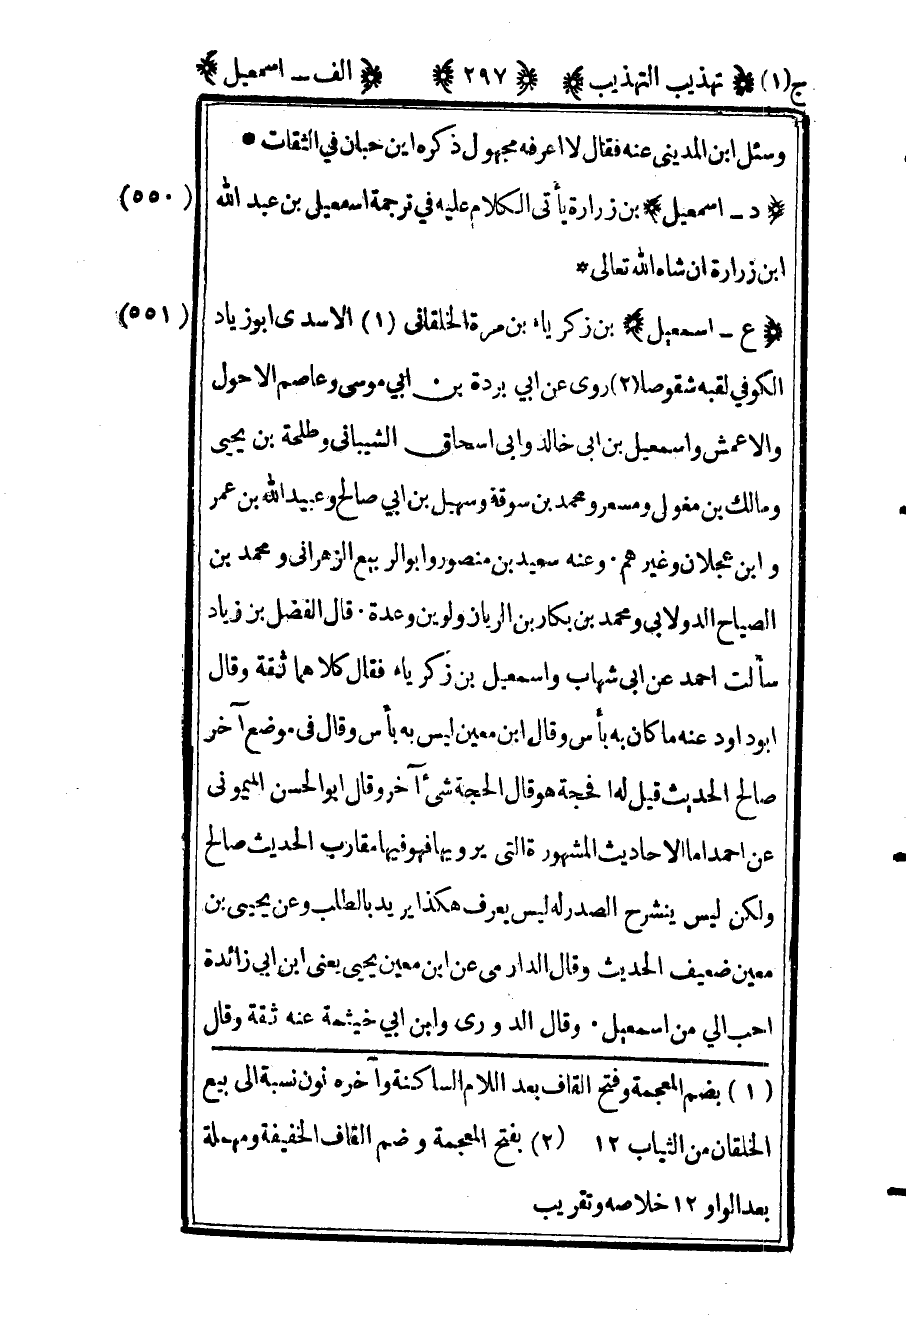 ج(١) ﴿ تهذيب التهذيب ﴾ ﴿ ٢٩٧ ﴾ ﴿ الف ـ اسمعيل ﴾
وسئل ابن المدينى عنه فقال لا اعرفه مجهول ذكره ابن حبان في الثقات •
﴿ د ـ اسمعيل ﴾ بن زرارة يأتى الكلام عليه في ترجمة اسمعيل بن عبد الله (٥٥٠)
ابن زرارة ان شاء الله تعالى *
﴿ ع ـ اسمعيل ﴾ بن زكرياء بن مرة الخلقانى (١) الاسدى ابو زياد (٥٥١)
الكوفي لقبه شقوصا (٢) روى عن ابي بردة بن ابي موسى وعاصم الاحول
والاعمش واسمعيل بن ابى خالد وابى اسحاق الشيبانى وطلحة بن يحيى
ومالك بن مغول ومسعر ومحمد بن سوقة وسهيل بن ابي صالح وعبيد الله بن عمر
وابن عجلان وغيرهم · وعنه سعيد بن منصور وابو الربيع الزهرانى ومحمد بن
الصباح الدولابي ومحمد بن بكار بن الريان ولوين وعدة · قال الفضل بن زياد
سألت احمد عن ابى شهاب واسمعيل بن زكرياء فقال كلاهما ثقة وقال
ابو داود عنه ما كان به بأس وقال ابن معين ليس به بأس وقال فى موضع آخر
صالح الحديث قيل له ا فحجة هو قال الحجة شئ آخر وقال ابو الحسن الميمونى
عن احمد اما الاحاديث المشهورة التى يرويها فهو فيها مقارب الحديث صالح
ولكن ليس ينشرح الصدر له ليس يعرف هكذا يريد بالطلب وعن يحيى بن
معين ضعيف الحديث وقال الدارمى عن ابن معين يحيى يعنى ابن ابي زائدة
احب الي من اسمعيل · وقال الدورى وابن ابي خيثمة عنه ثقة وقال
(١) بضم المعجمة وفتح القاف بعد اللام الساكنة وآخره نون نسبة الى بيع
الخلقان من الثياب ١٢ (٢) بفتح المعجمة وضم القاف الخفيفة ومهملة
بعد الواو ١٢ خلاصه وتقريب